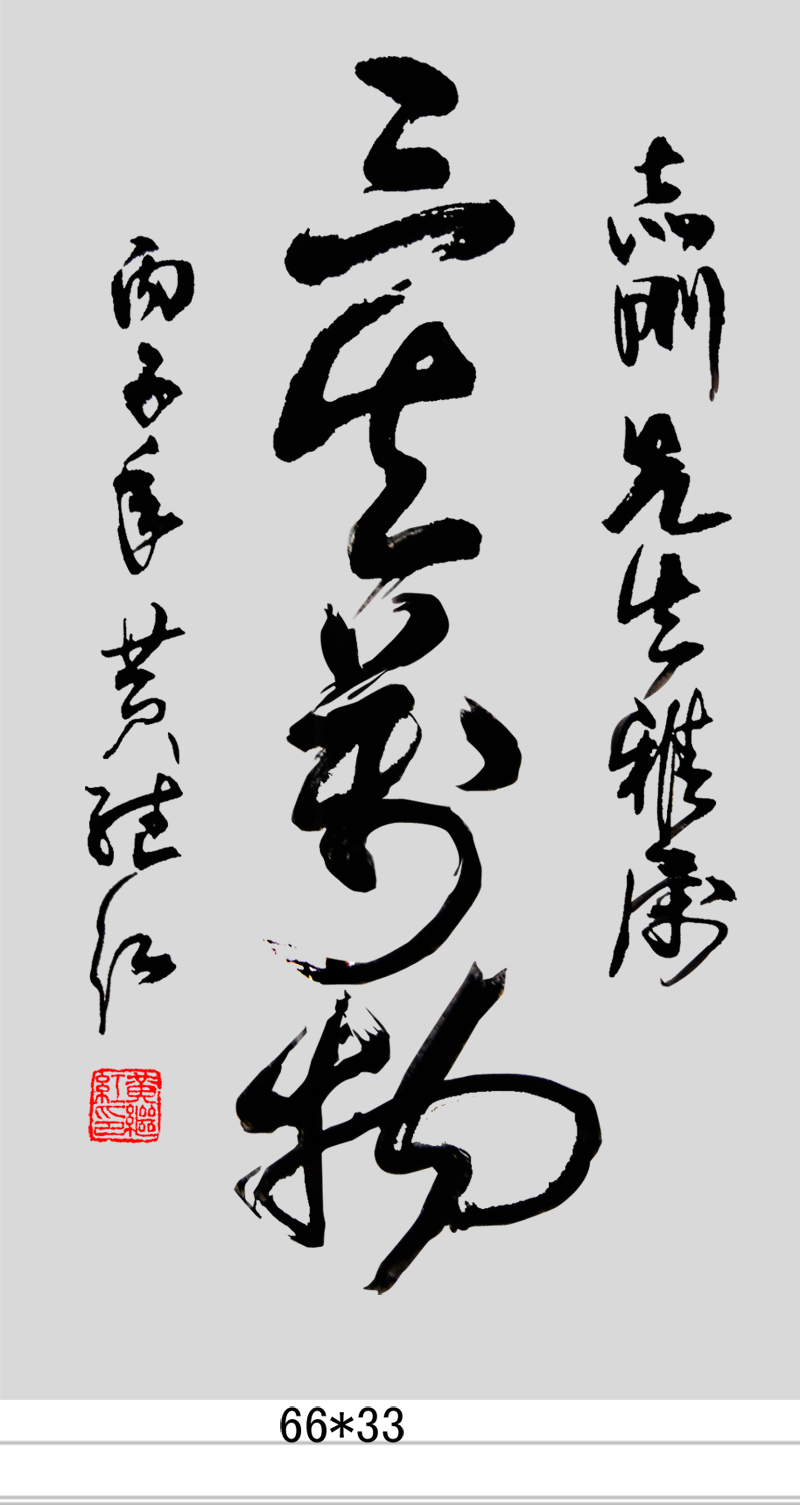 志刚先生雅属
三生萬物
丙子年 黄继红
黄繼紅印
66*33